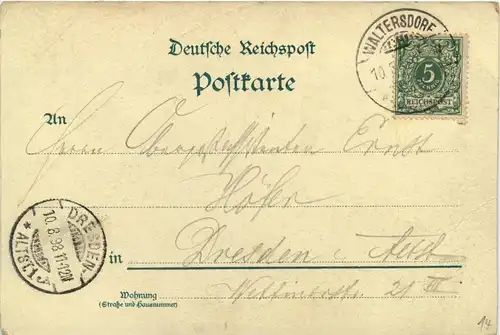 Deutsche Reichspost
Postkarte
WALTERSDORF
10.
5
REICHSPOST
An
Herrn Ernst
Höfer
in Dresden
21 III
Wohnung
(Straße und Hausnummer)
DRESDEN
10.8.98.11-12N
* ALTST.
14